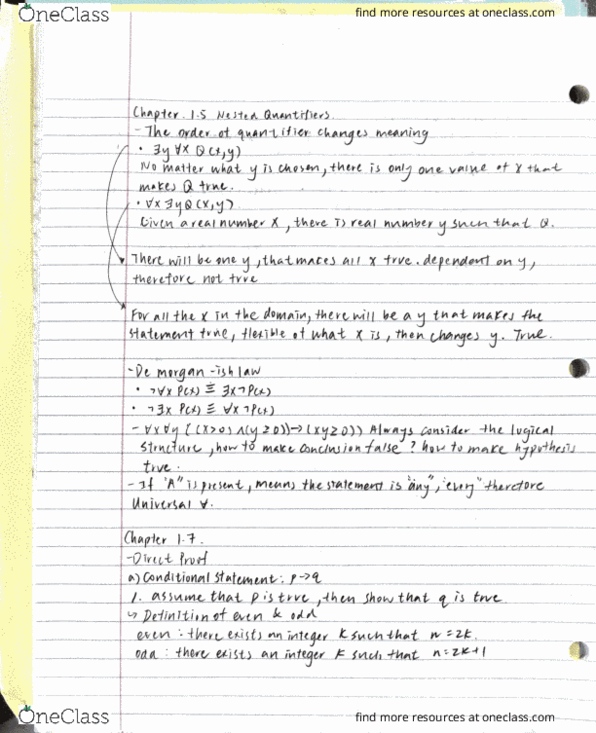 OneClass
find more resources at oneclass.com
Chapter 1.5 Nested Quantifiers
- The order of quantifier changes meaning
• ∃y ∀x Q(x,y)
No matter what y is chosen, there is only one value of x that
makes Q true.
• ∀x ∃y Q(x,y)
Given a real number x, there is real number y such that Q.
There will be one y, that makes all x true. dependent on y,
therefore not true
For all the x in the domain, there will be a y that makes the
statement true, flexible of what x is, then changes y. True.
- De morgan-ish law
• ¬∀x P(x) ≡ ∃x ¬P(x)
• ¬∃x P(x) ≡ ∀x ¬P(x)
- ∀x∀y ((x>0) ∧ (y≥0)) → (xy≥0)) Always consider the logical
structure, how to make conclusion false? how to make hypothesis
true.
- If "A" is present, means the statement is "any", "every" therefore
Universal ∀.
Chapter 1.7.
- Direct Proof
a) Conditional statement: p→q
1. assume that p is true, then show that q is true
↳ Definition of even & odd
even: there exists an integer k such that n=2k.
odd: there exists an integer k such that n=2k+1
OneClass
find more resources at oneclass.com